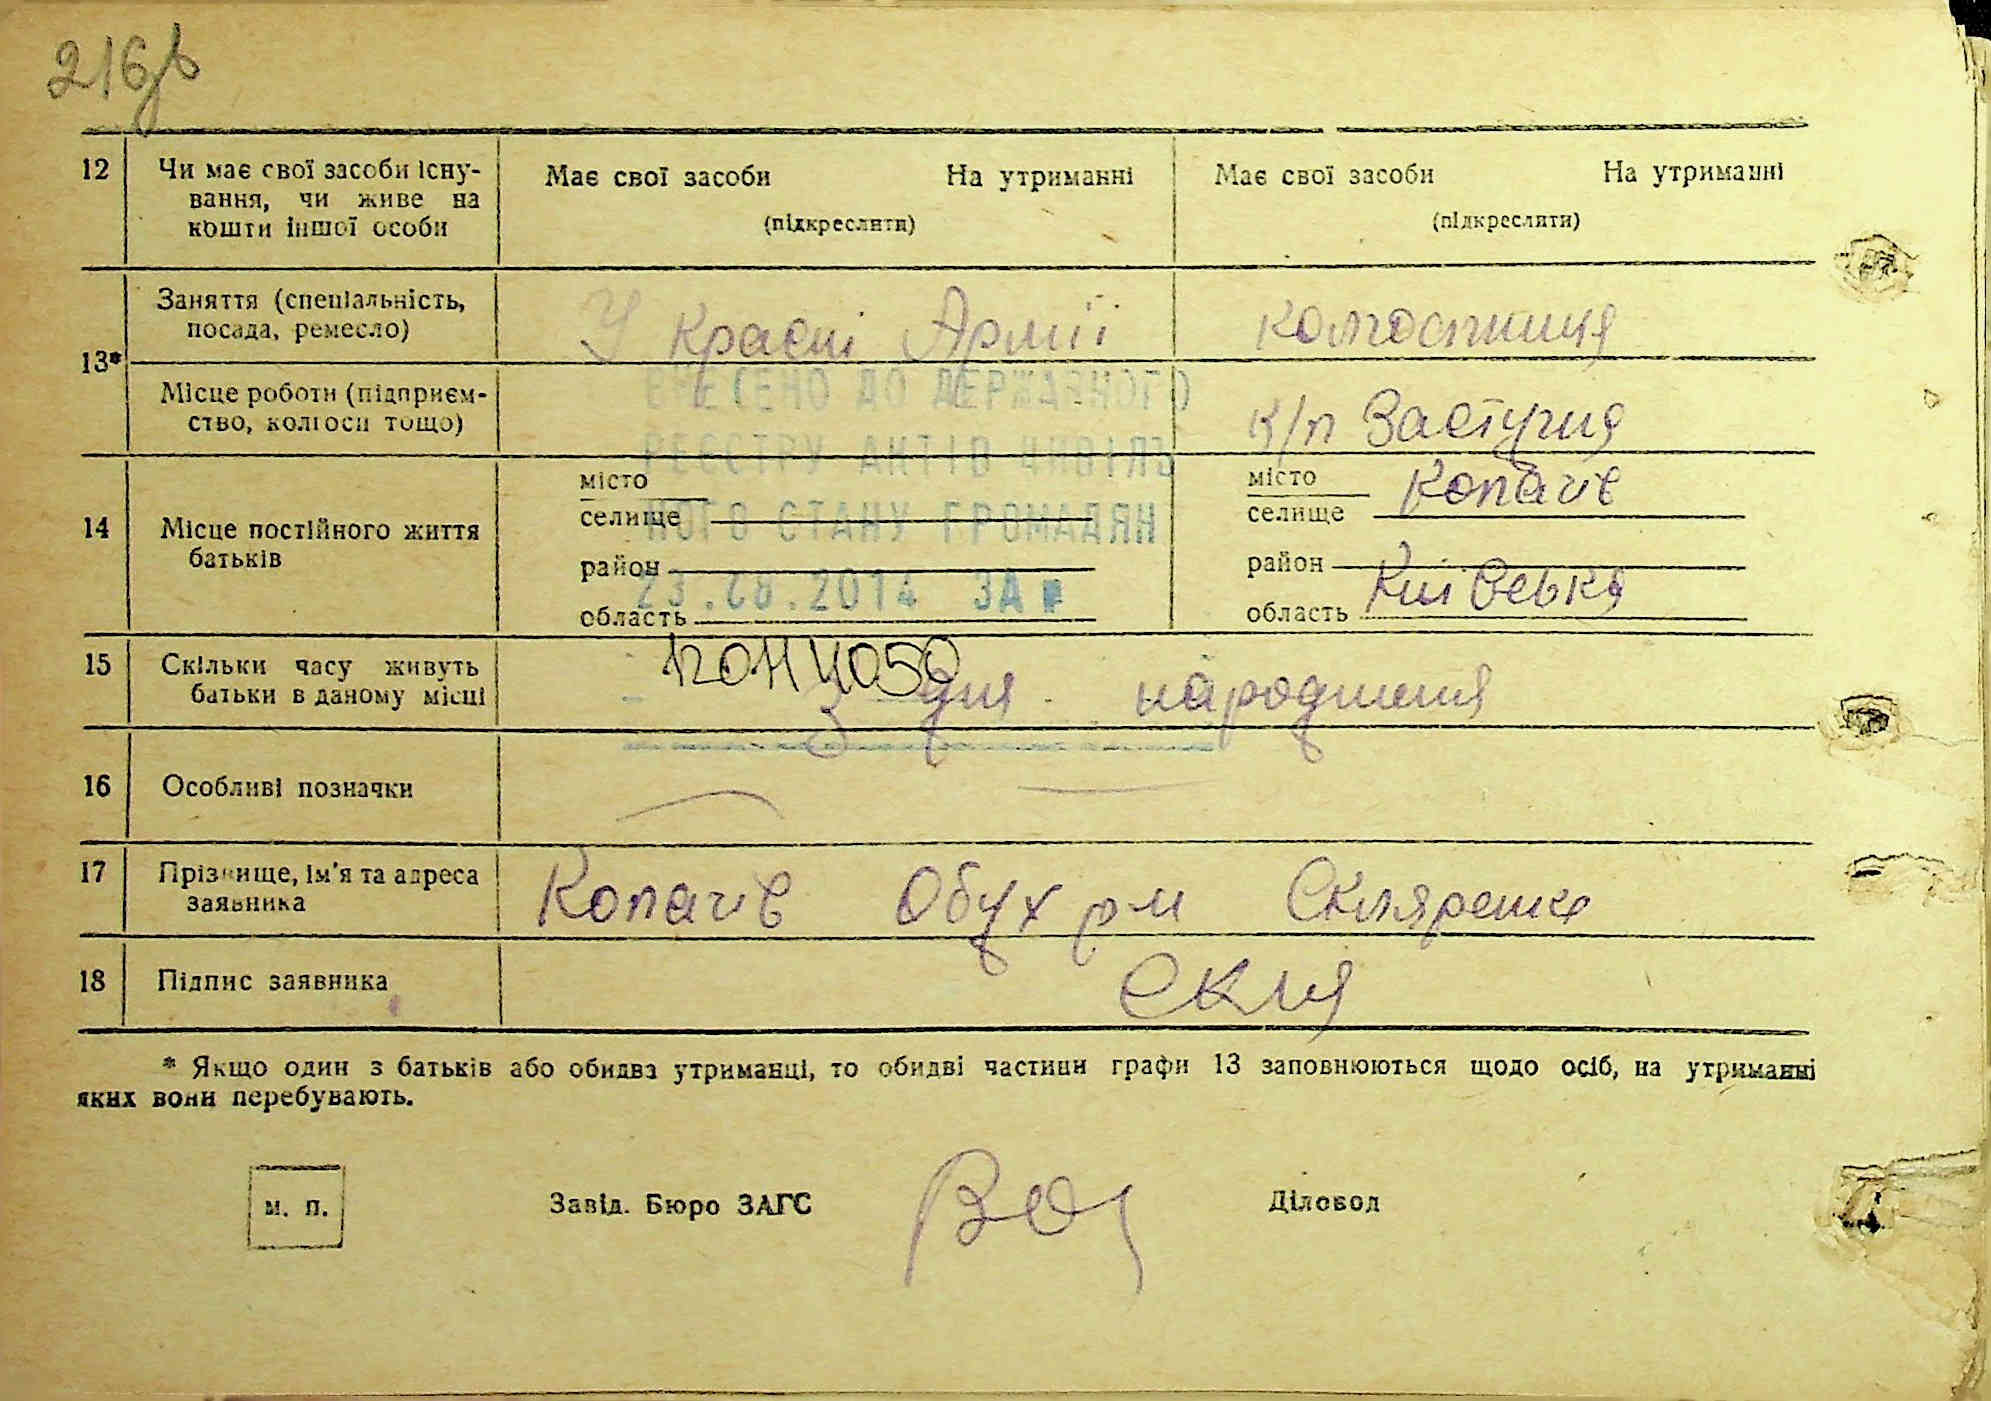 216зв
12 Чи має свої засоби існу- Має свої засоби На утриманні Має свої засоби На утриманні
вання, чи живе на
кошти іншої особи (підкреслити) (підкреслити)
Заняття (спеціальність,
посада, ремесло) У Красні Армії колгоспниця
13*
Місце роботи (підприєм-
ство, колгосп тощо) к/п Заступня
ВНЕСЕНО ДО ДЕРЖАВНОГО
РЕЄСТРУ АКТІВ ЦИВІЛЬ
НОГО СТАНУ ГРОМАДЯН
23.08.2014 ЗА №
12014050
14 Місце постійного життя
батьків
місто
селище
район
область
місто
селище Копачів
район
область Київська
15 Скільки часу живуть
батьки в даному місці З дня народження
16 Особливі позначки
17 Прізвище, ім'я та адреса
заявника Копачів Обух р-н Скляренко
18 Підпис заявника Скля
* Якщо один з батьків або обидва утриманці, то обидві частини графи 13 заповнюються щодо осіб, на утриманні
яких вони перебувають.
м. п. Завід. Бюро ЗАГС Діловод